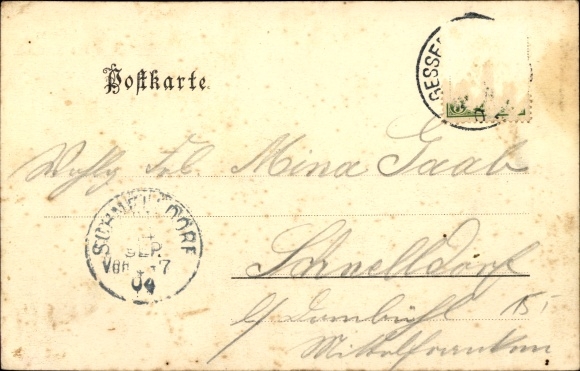 Postkarte
GESSE
Wohlg. Frl. Mina Gaab
SCHNELLDORF
SEP.
04
Schnelldorf
b/ Dombühl
15,-
Mittelfranken